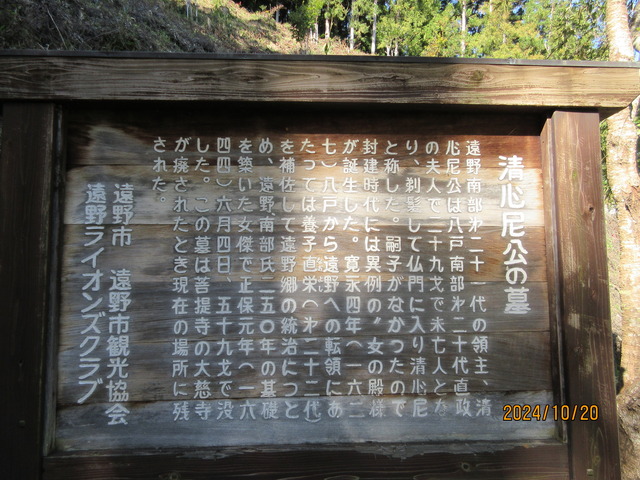 清心尼公の墓
遠野南部㐧二十一代の領主、清
心尼公は八戸南部㐧二十代直政
の夫人で二十九才で未亡人とな
り、剃髪して仏門に入り清心尼
と称した。嗣子がなかったので
封建時代には異例の〝女の殿様
が誕生した。寛永四年(一六二
七)八戸から遠野への転領にあ
たっては養子直栄(㐧二十二代)
を補佐して遠野郷の統治につと
め、遠野南部氏二五〇年の基礎
を築いた女傑で正保元年(一六
四四)六月四日、五十九才で没
した。この墓は菩提寺の大慈寺
が廃されたとき現在の場所に残
された。
遠野市 遠野市観光協会
遠野ライオンズクラブ
2024/10/20